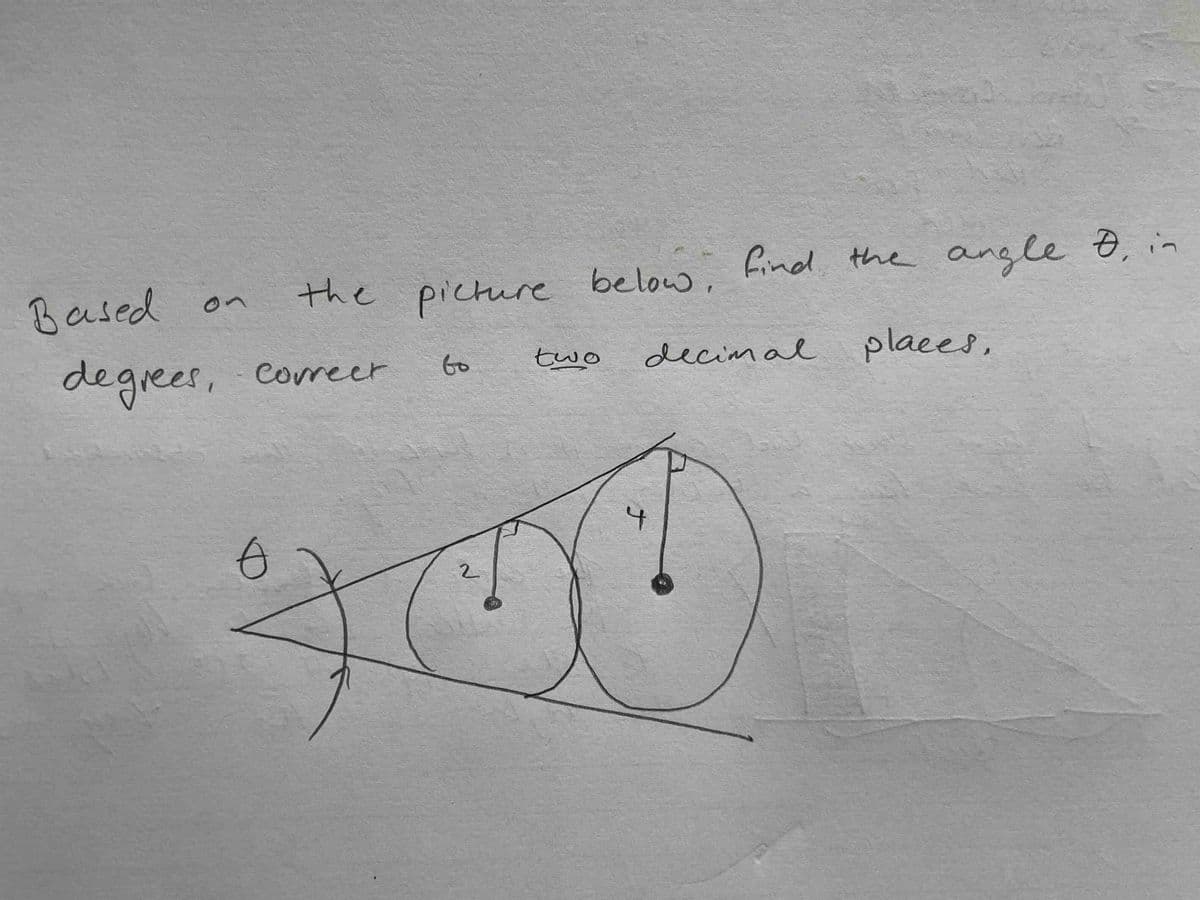 Based on the picture below, find the angle θ, in
degrees, correct to two decimal places.
4
θ
2